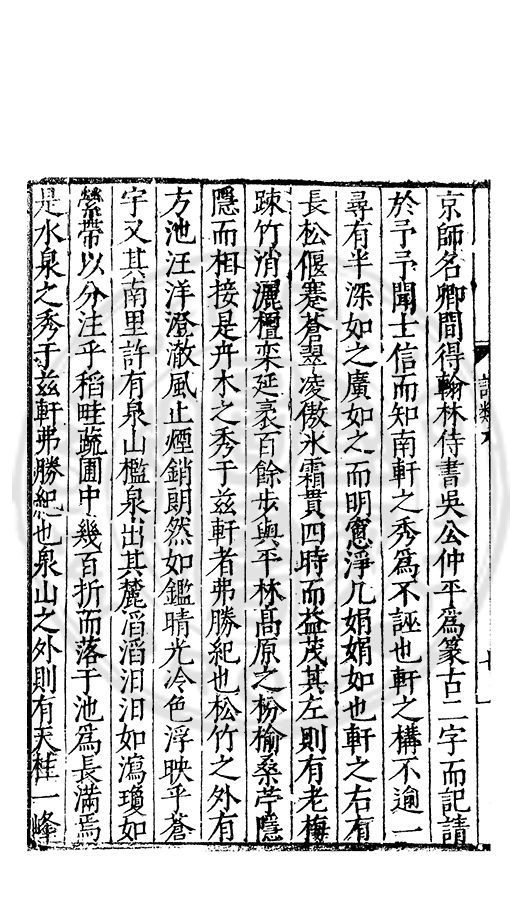 京師名卿間得翰林侍書吳公仲平爲篆古二字而記請
於予予聞士信而知南軒之秀爲不誣也軒之構不逾一
尋有半深如之廣如之而明窻淨几娟娟如也軒之右有
長松偃蹇蒼翠凌傲氷霜貫四時而益茂其左則有老梅
踈竹消灑檀栾延袤百餘步與平林髙原之枌榆桑苧隱
隱而相接是卉木之秀于兹軒者弗勝紀也松竹之外有
方池汪洋澄澈風止煙銷朗然如鑑晴光冷色浮映乎蒼
宇又其南里許有泉山檻泉出其麓滔滔汩汩如瀉瓊如
縈帶以分注乎稻畦蔬圃中幾百折而落于池爲長滿焉
是水泉之秀于兹軒弗勝紀也泉山之外則有天桂一峰